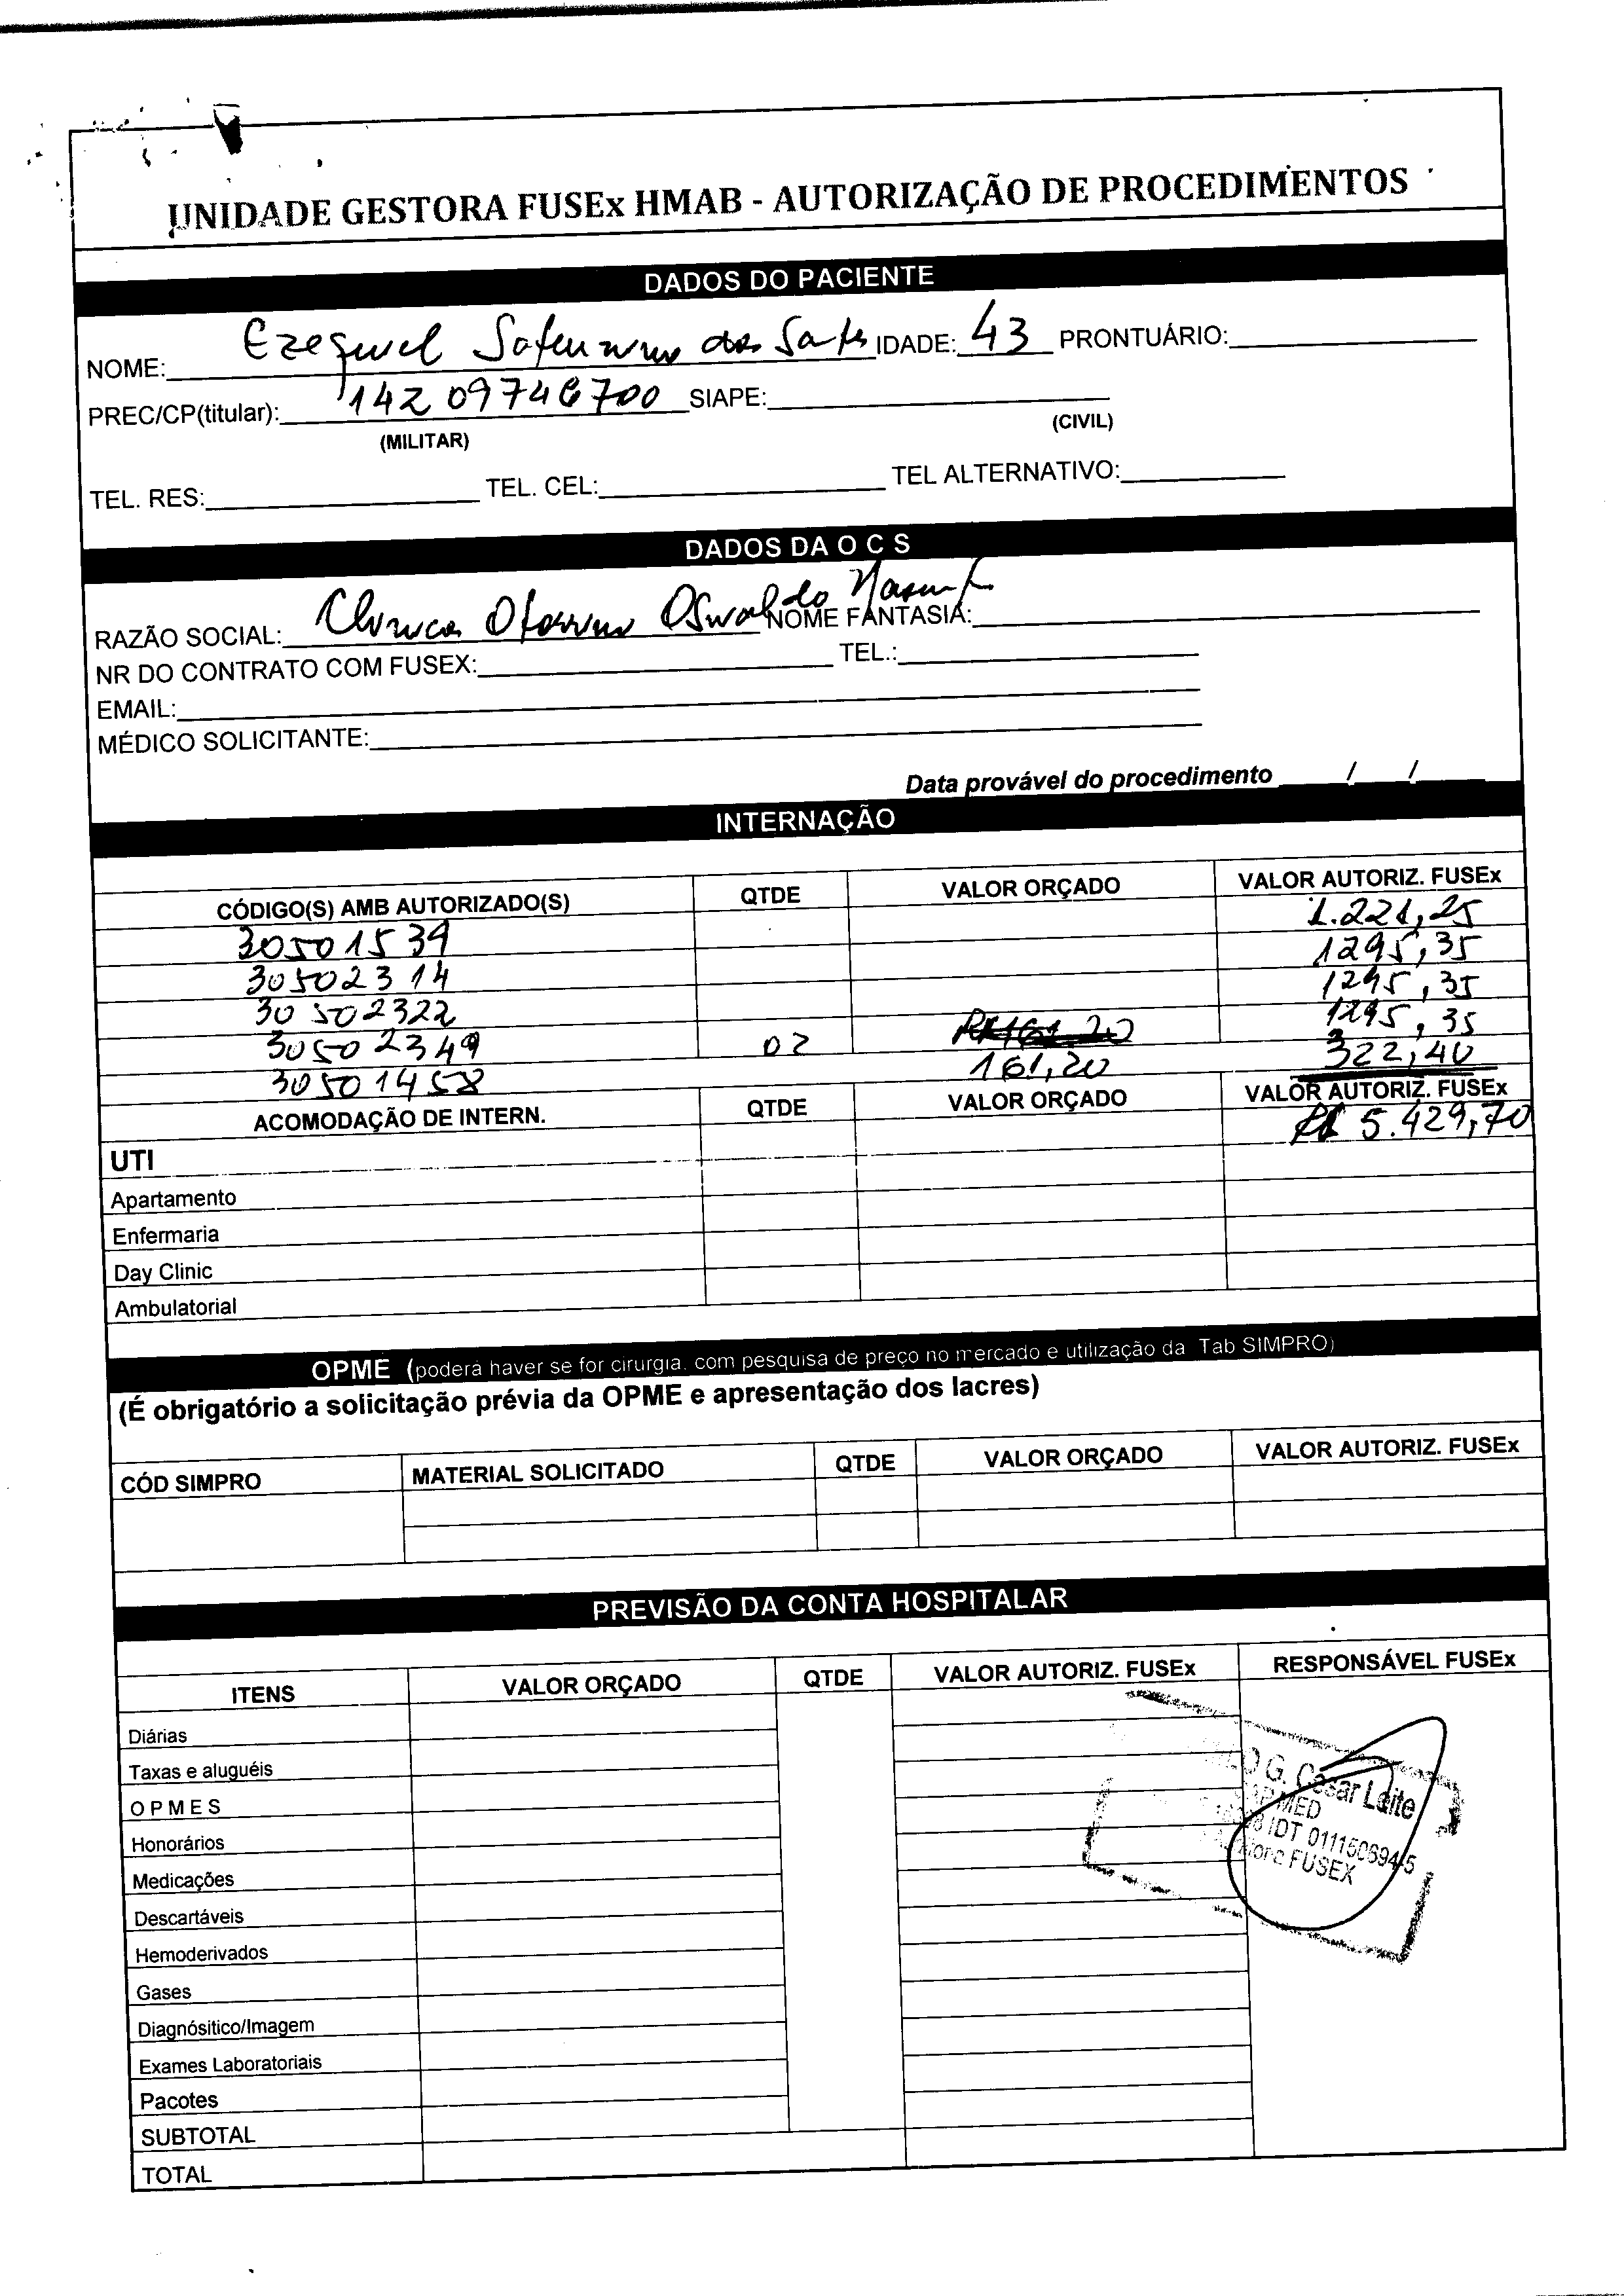 UNIDADE GESTORA FUSEx HMAB - AUTORIZAÇÃO DE PROCEDIMENTOS
DADOS DO PACIENTE
NOME: Ezequiel Saturnino dos Santos IDADE: 43 PRONTUÁRIO:
PREC/CP(titular): 142 09746700 SIAPE:
(MILITAR) (CIVIL)
TEL. RES: TEL. CEL: TEL ALTERNATIVO:
DADOS DA O C S
RAZÃO SOCIAL: Clinica Otorrino Oswaldo NOME FANTASIA:
NR DO CONTRATO COM FUSEX: TEL.:
EMAIL:
MÉDICO SOLICITANTE:
Data provável do procedimento / /
INTERNAÇÃO
CÓDIGO(S) AMB AUTORIZADO(S) QTDE VALOR ORÇADO VALOR AUTORIZ. FUSEx
30501539 1.221,25
30502314 1295,35
30502322 1295,35
30502349 02 R$161.20 1295,35
30501458 161,20 322,40
ACOMODAÇÃO DE INTERN. QTDE VALOR ORÇADO VALOR AUTORIZ. FUSEx
UTI R$ 5.429,70
Apartamento
Enfermaria
Day Clinic
Ambulatorial
OPME (poderá haver se for cirurgia. com pesquisa de preço no mercado e utilização da Tab SIMPRO)
(É obrigatório a solicitação prévia da OPME e apresentação dos lacres)
CÓD SIMPRO MATERIAL SOLICITADO QTDE VALOR ORÇADO VALOR AUTORIZ. FUSEx
PREVISÃO DA CONTA HOSPITALAR
ITENS VALOR ORÇADO QTDE VALOR AUTORIZ. FUSEx RESPONSÁVEL FUSEx
Diárias
Taxas e aluguéis
O P M E S
Honorários
Medicações
Descartáveis
Hemoderivados
Gases
Diagnósitico/Imagem
Exames Laboratoriais
Pacotes
SUBTOTAL
TOTAL
G. Cesar Leite
MED
IDT 011150694-5
FUSEX